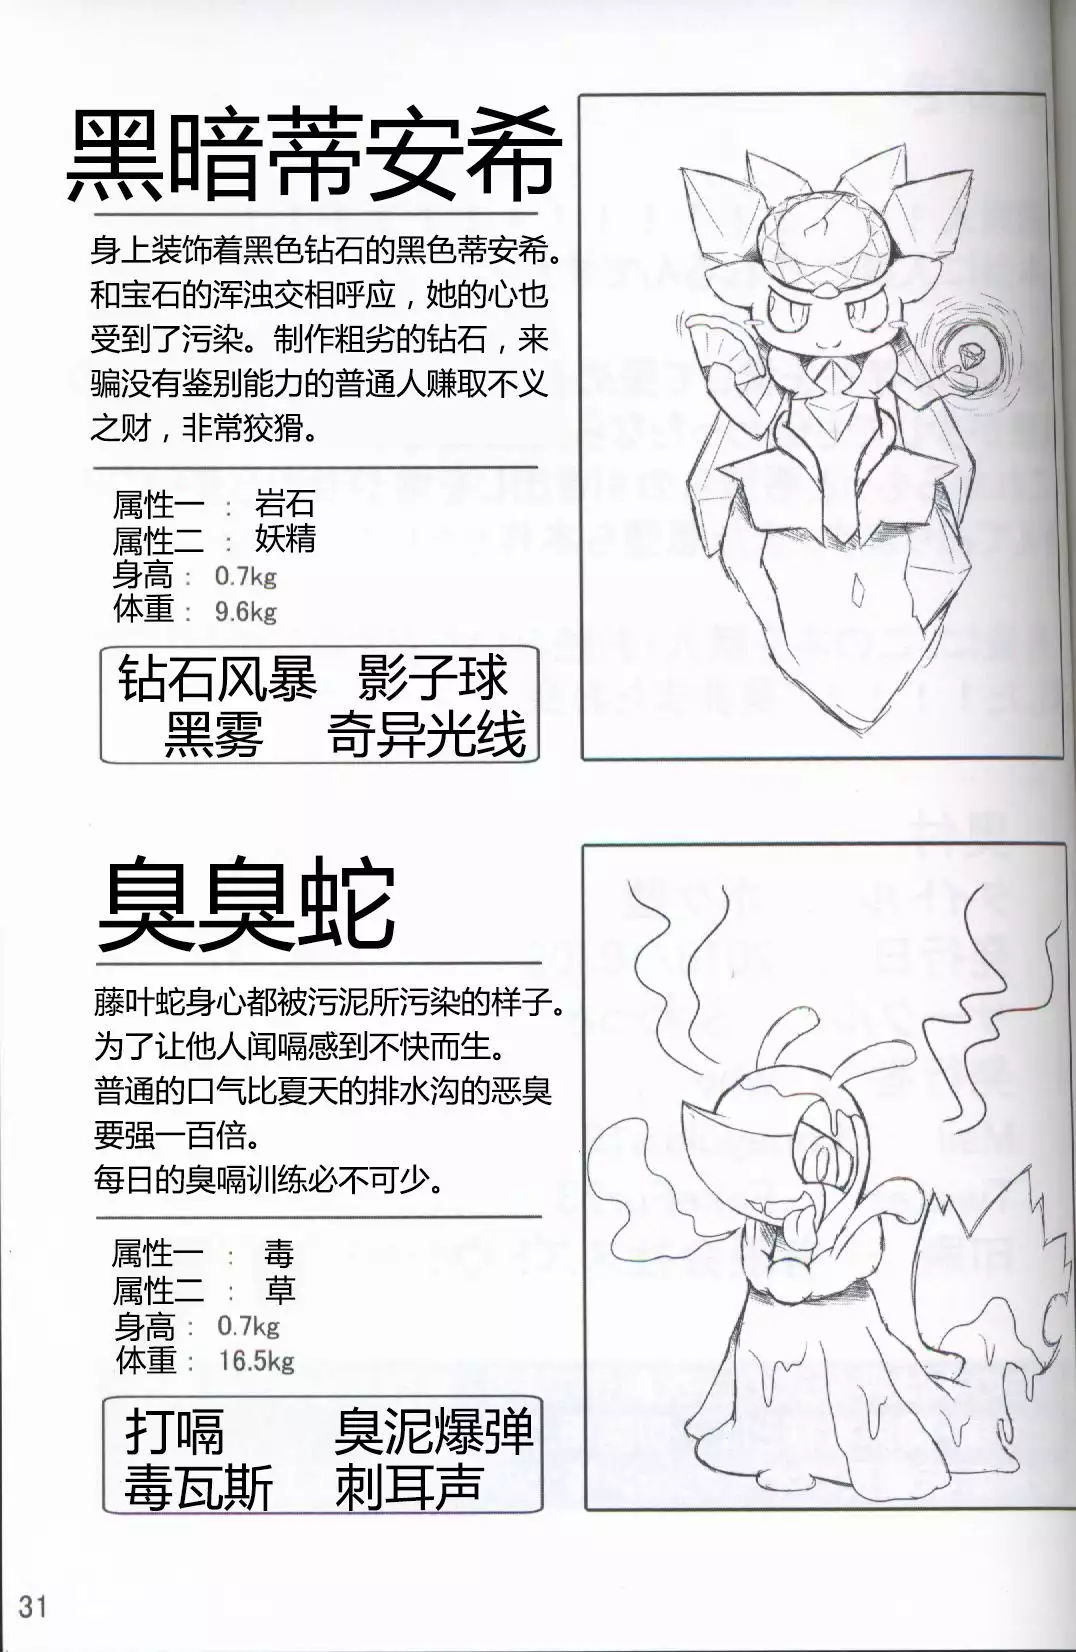 黑暗蒂安希
身上装饰着黑色钻石的黑色蒂安希。
和宝石的浑浊交相呼应，她的心也
受到了污染。制作粗劣的钻石，来
骗没有鉴别能力的普通人赚取不义
之财，非常狡猾。
属性一 ： 岩石
属性二 ： 妖精
身高： 0.7kg
体重： 9.6kg
钻石风暴 影子球
黑雾 奇异光线
臭臭蛇
藤叶蛇身心都被污泥所污染的样子。
为了让他人闻嗝感到不快而生。
普通的口气比夏天的排水沟的恶臭
要强一百倍。
每日的臭嗝训练必不可少。
属性一 ： 毒
属性二 ： 草
身高： 0.7kg
体重： 16.5kg
打嗝 臭泥爆弹
毒瓦斯 刺耳声
31